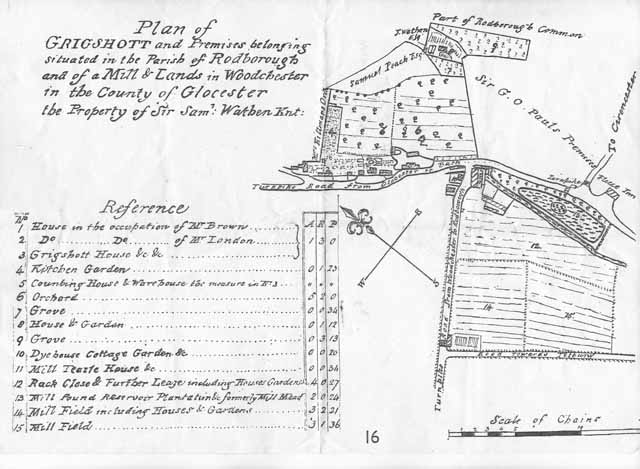 Plan of
GRIGSHOTT and Premises belonging
situated in the Parish of Rodborough
and of a Mill & Lands in Woodchester
in the County of Glocester
the Property of Sir Samˡ: Wathen Knt:
Part of Rodborough Common
Samuel Peach Esqʳ
Sir G. O. Pauls Premises
To Cirencester
Turnpike Road from Glocester to Bath
Road from Woodchester to Rodborough
Turnpike
Road towards
Reference
No A R P
1 House in the occupation of Mr Brown
2 Do Do of Mr London 1 3 0
3 Grigshott House &c &c
4 Kitchen Garden 0 1 23
5 Counting House & Warehouse the measure in No 3 " " "
6 Orchard 5 2 0
7 Grove 0 1 34
8 House & Garden 0 1 12
9 Grove 0 1 13
10 Dyehouse Cottage Garden &c 0 0 20
11 Mill Teazle House &c 0 0 34
12 Rack Close & Further Leaze including Houses Gardens 4 0 27
13 Mill Pound Reservoir Plantation & formerly Mill Mead 2 0 24
14 Mill Field including Houses & Gardens 3 2 21
15 Mill Field 3 1 36
12
14
15
E
W
S
Scale of Chains
16